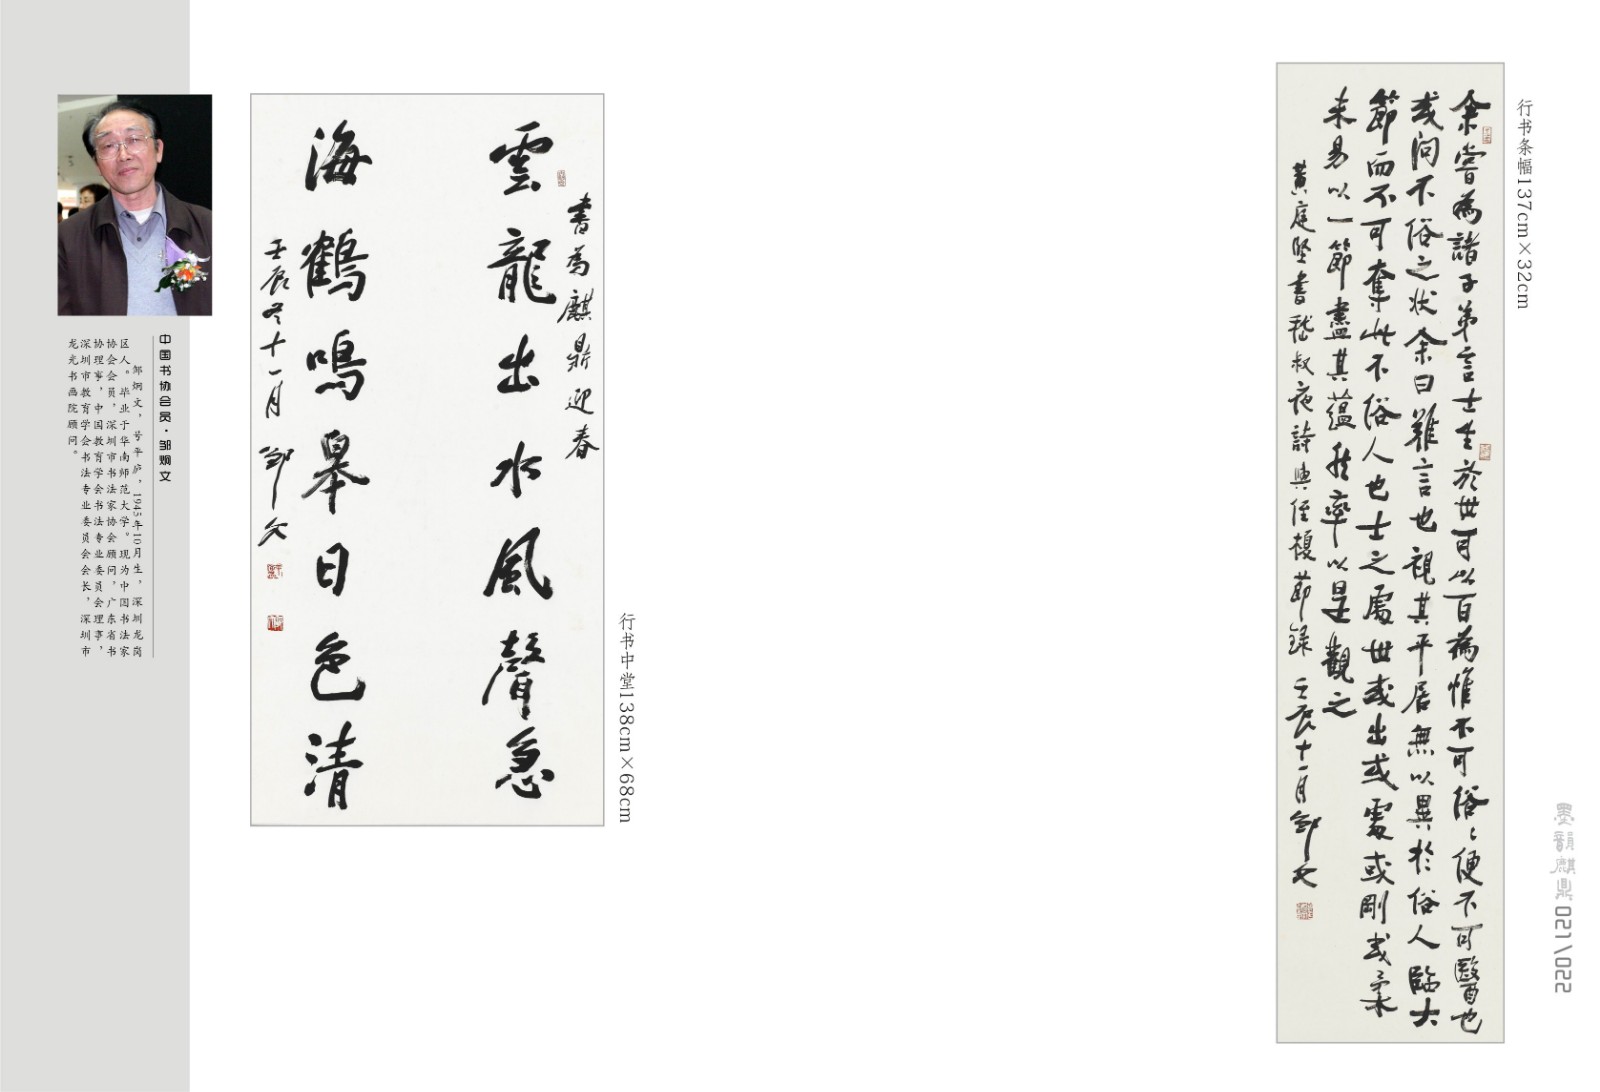 中国书协会员·邹炯文
邹炯文，号平庐，1945年10月生，深圳龙岗
区人。毕业于华南师范大学。现为中国书法家
协会会员，深圳市书法家协会顾问，广东省书
协理事，中国教育学会书法专业委员会理事，
深圳市教育学会书法专业委员会会长，深圳市
龙光书画院顾问。
書為麒鼎迎春
雲龍出水風聲急
海鶴鳴皋日色清
壬辰冬十一月 邹文
行书中堂138cm×68cm
行书条幅137cm×32cm
余嘗為諸子弟言士生於世可以百為惟不可俗〻便不可醫也
或問不俗之状余曰難言也視其平居無以異於俗人臨大
節而不可奪此不俗人也士之處世或出或處或剛或柔
未易以一節盡其蘊然率以是觀之
黃庭堅書嵇叔夜詩與侄榎節録 壬辰十一月邹文
墨韻麒鼎 021\022